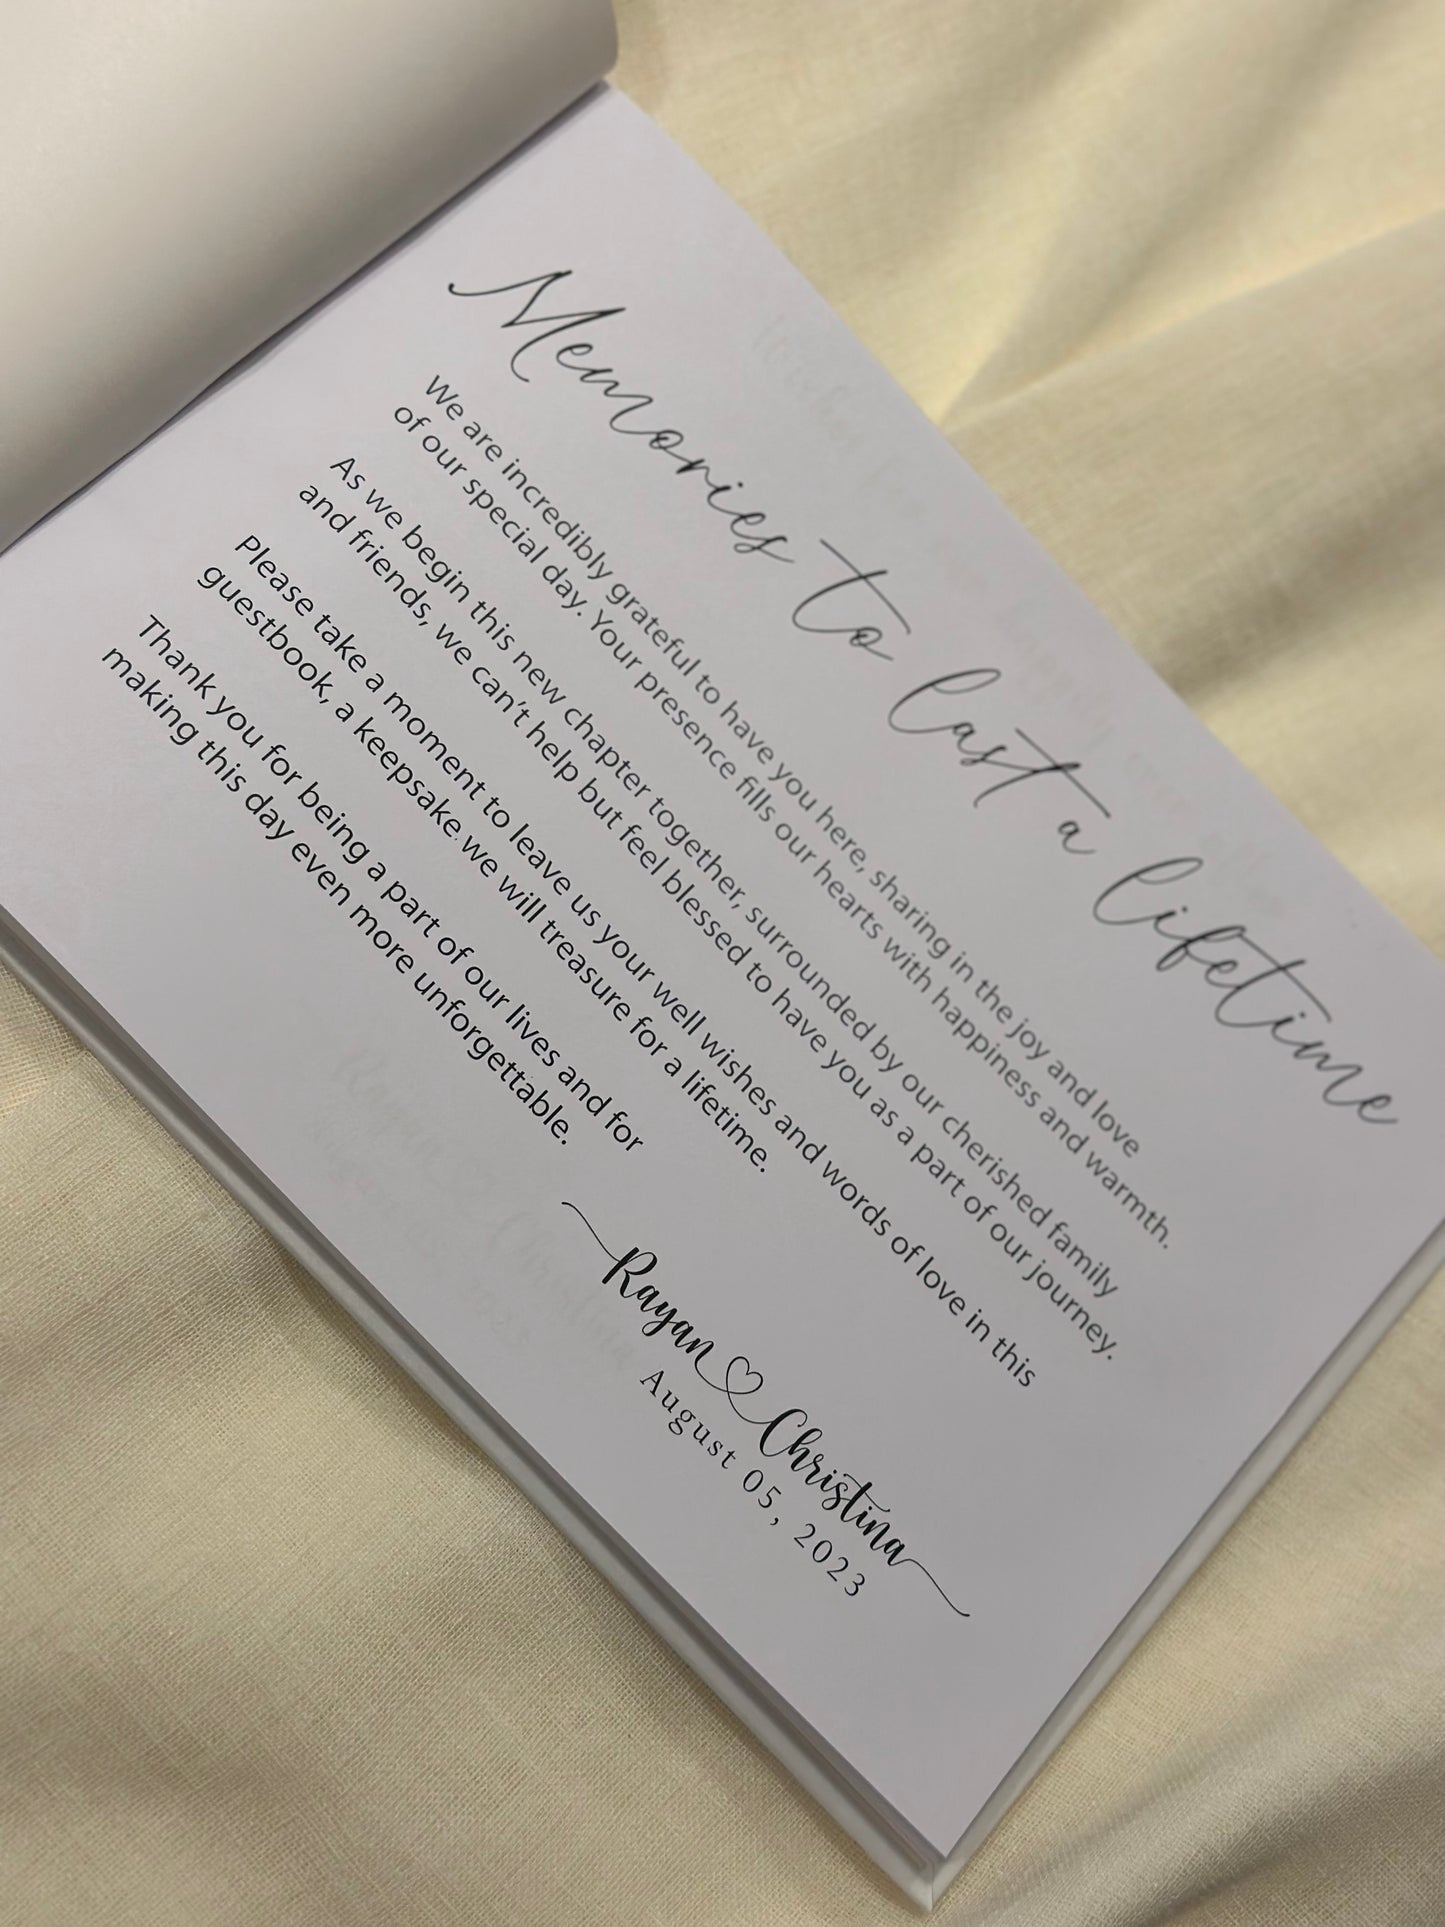 Memories to last a lifetime
We are incredibly grateful to have you here, sharing in the joy and love
of our special day. Your presence fills our hearts with happiness and warmth.
As we begin this new chapter together, surrounded by our cherished family
and friends, we can't help but feel blessed to have you as a part of our journey.
Please take a moment to leave us your well wishes and words of love in this
guestbook, a keepsake we will treasure for a lifetime.
Thank you for being a part of our lives and for
making this day even more unforgettable.
Rayan Christina
August 05, 2023